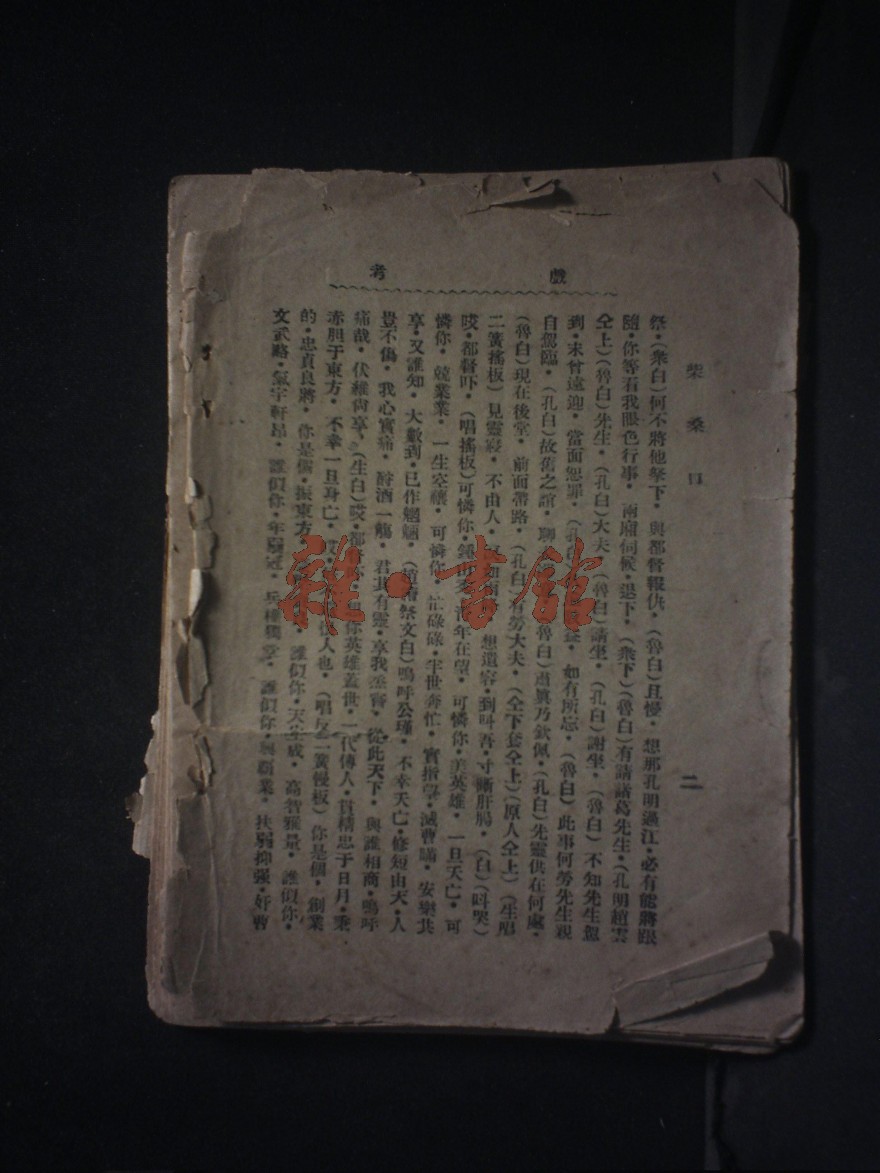 戲考
柴桑口
二
祭·(衆白)何不將他拏下·與都督報仇·(魯白)且慢·想那孔明過江·必有能將跟
隨·你等看我眼色行事·兩廂伺候·退下·(衆下)(魯白)有請諸葛先生·(孔明趙雲
仝上)(魯白)先生·(孔白)大夫·(魯白)請坐·(孔白)謝坐·(魯白)不知先生駕
到·未曾遠迎·當面恕罪·(孔白)如有所忘·(魯白)此事何勞先生親
自駕臨·(孔白)故舊之誼·聊(魯白)眞乃欽佩·(孔白)先靈供在何處·
(魯白)現在後堂·前面帶路·(孔白)有勞大夫·(仝下套仝上)(原人仝上)(生唱
二簧搖板)見靈寢·不由人·想遺容·到叫吾·寸斷肝腸·(白)(叫哭)
哎·都督吓·(唱搖板)可憐你·年在望·可憐你·美英雄·一旦夭亡·可
憐你·兢業業·一生空穰·可憐你·忙碌碌·半世奔忙·實指望·滅曹瞞·安樂共
享·又誰知·大數到·已作魍魎·(讀祭文白)嗚呼公瑾·不幸夭亡·修短由天·人
豈不傷·我心實痛·酹酒一觴·君其有靈·享我烝嘗·從此天下·與誰相商·嗚呼
痛哉·伏維尙享·(生白)哎·都督·你英雄蓋世·一代傳人·貫精忠于日月·秉
赤胆于東方·不幸一旦身亡·人也·(唱反二簧慢板)你是個·創業
的·忠貞良將·你是個·振東方·誰似你·天生成·高智雅量·誰似你·
文武略·氣宇軒昂·誰似你·年·兵權·誰似你·業·扶弱抑强·奸曹
雜·書館